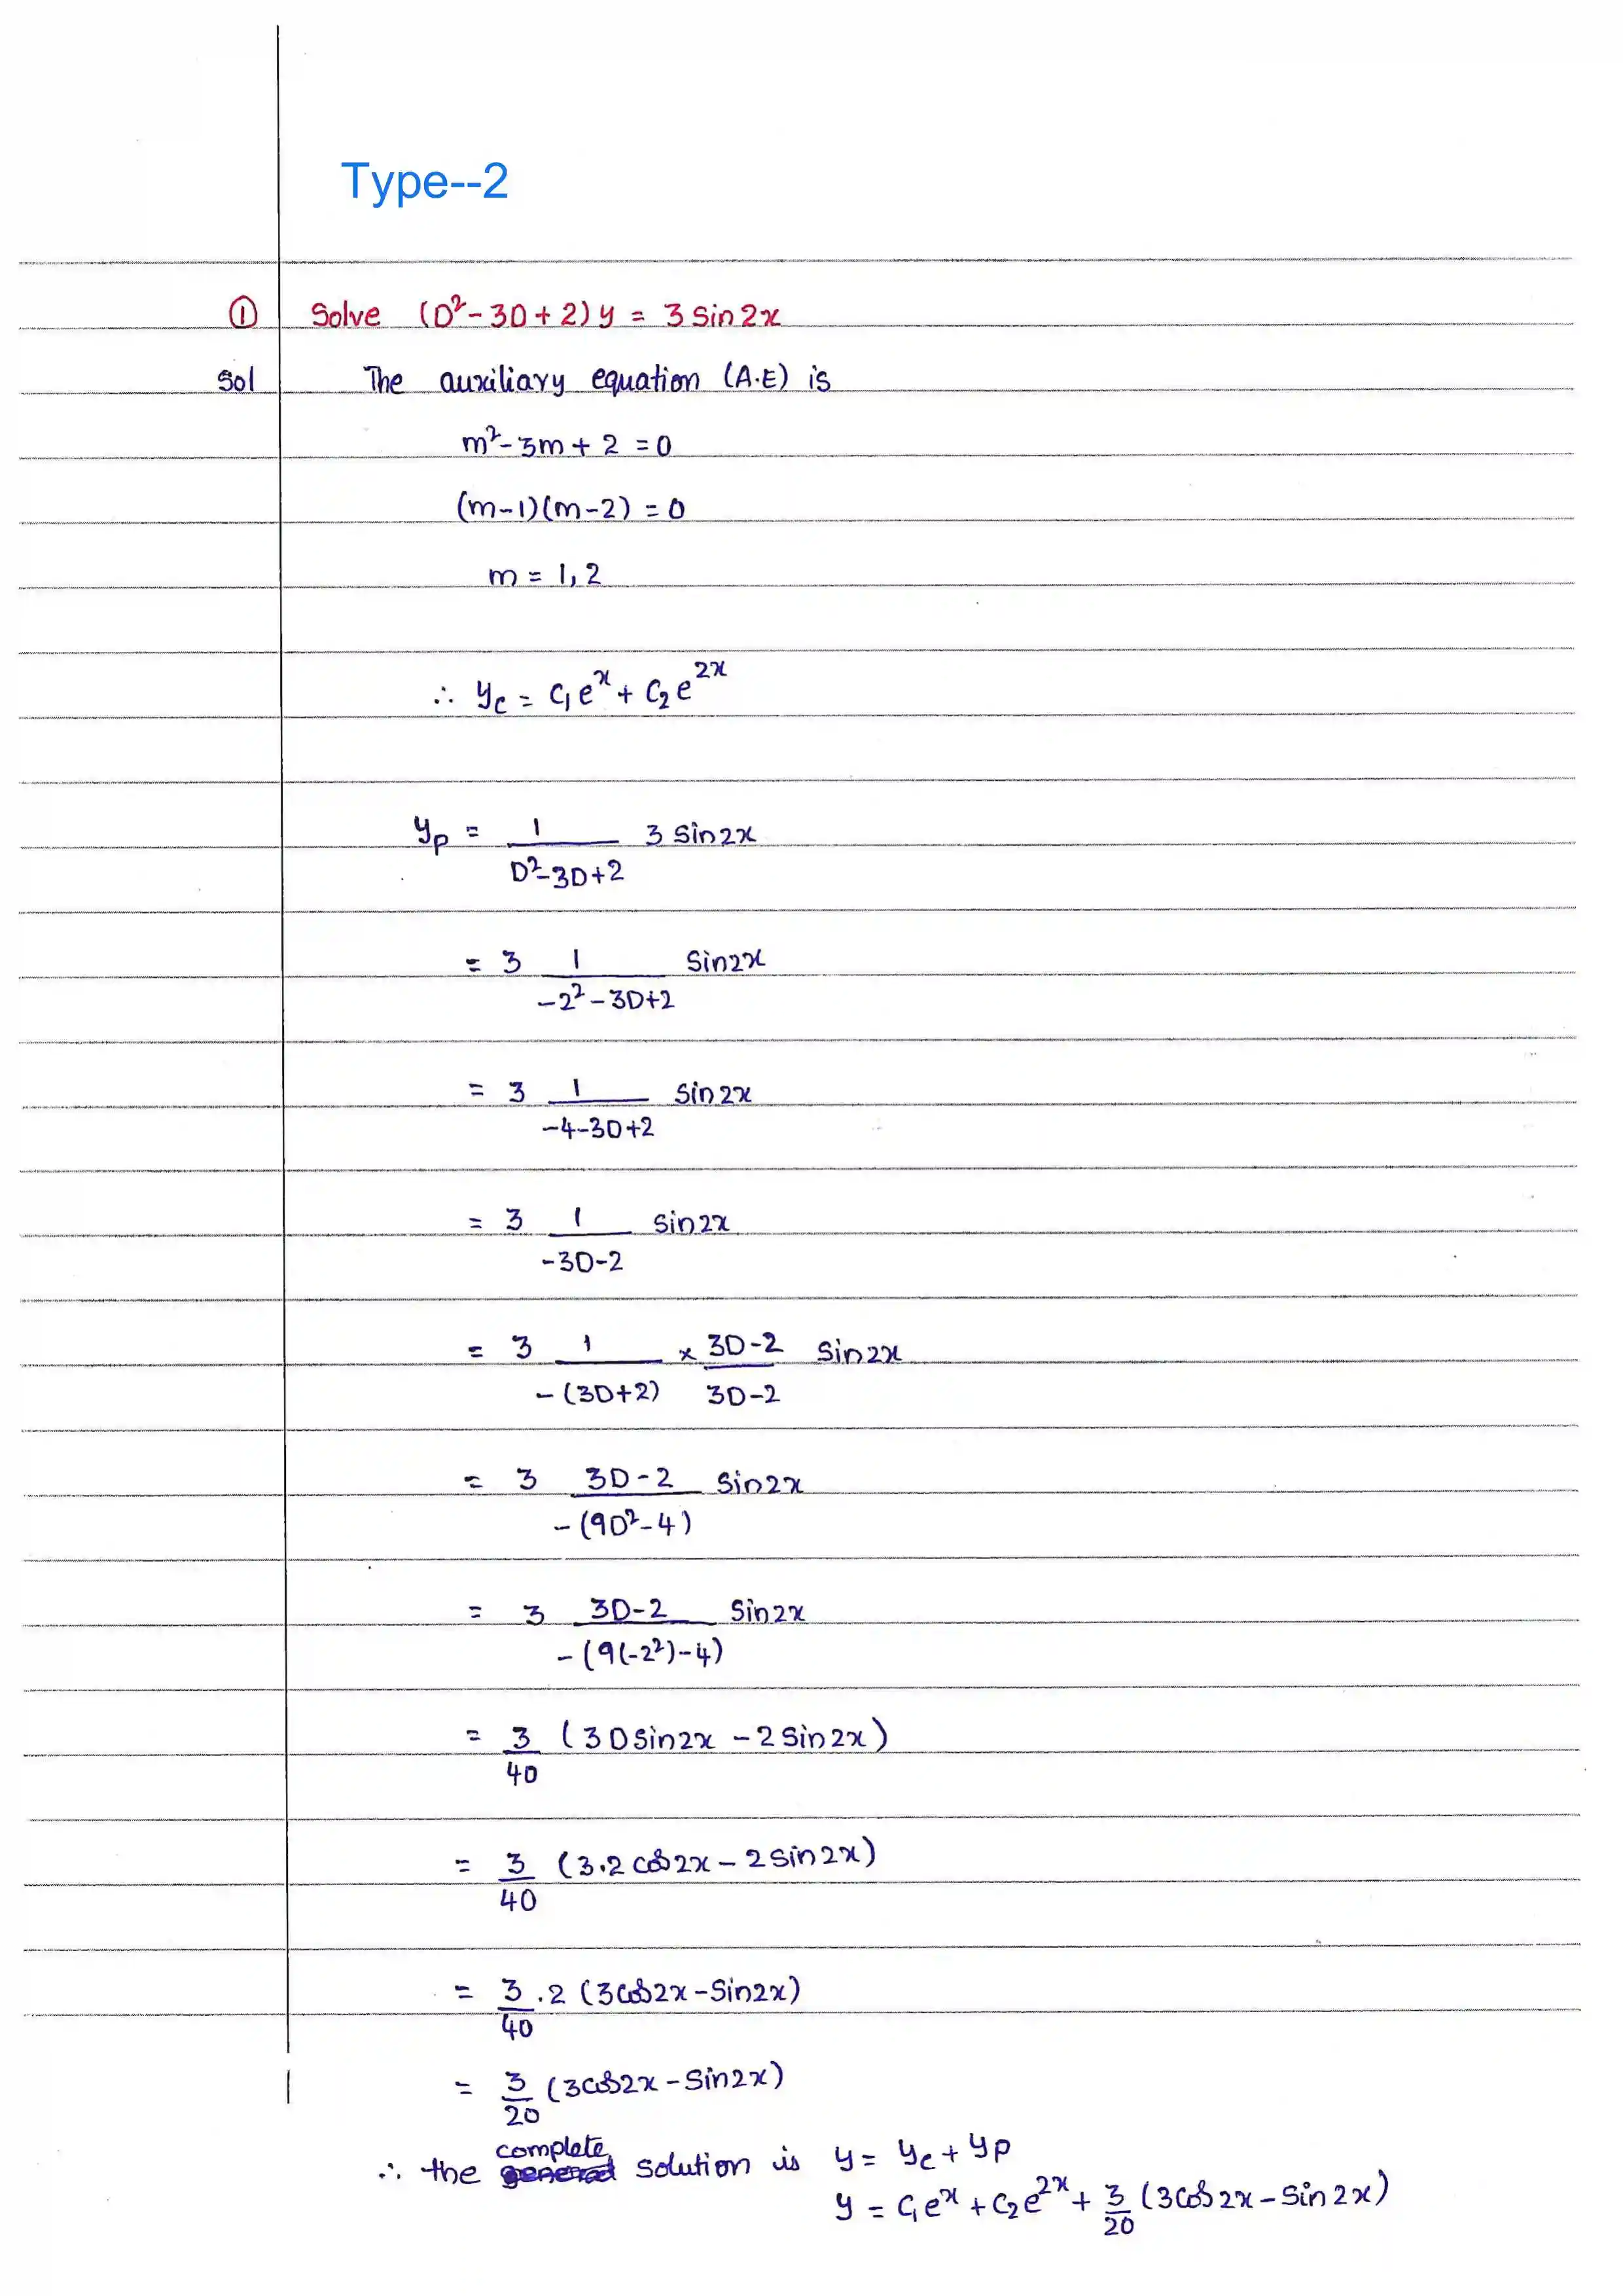 Type--2
① Solve (D²-3D+2)y = 3 Sin2x
Sol The auxiliary equation (A.E) is
m²-3m+2 =0
(m-1)(m-2) =0
m = 1,2
∴ y_c = c₁e^x + c₂e^2x
y_p = 1/(D²-3D+2) 3 Sin2x
= 3 1/(-2²-3D+2) Sin2x
= 3 1/(-4-3D+2) Sin2x
= 3 1/(-3D-2) Sin2x
= 3 1/(-(3D+2)) × (3D-2)/(3D-2) Sin2x
= 3 (3D-2)/(-(9D²-4)) Sin2x
= 3 (3D-2)/(-(9(-2²)-4)) Sin2x
= 3/40 (3DSin2x - 2Sin2x)
= 3/40 (3.2cos2x - 2Sin2x)
= 3/40 .2 (3cos2x-Sin2x)
= 3/20 (3cos2x-Sin2x)
∴ the complete solution is y = y_c + y_p
y = c₁e^x + c₂e^2x + 3/20 (3cos2x-Sin2x)